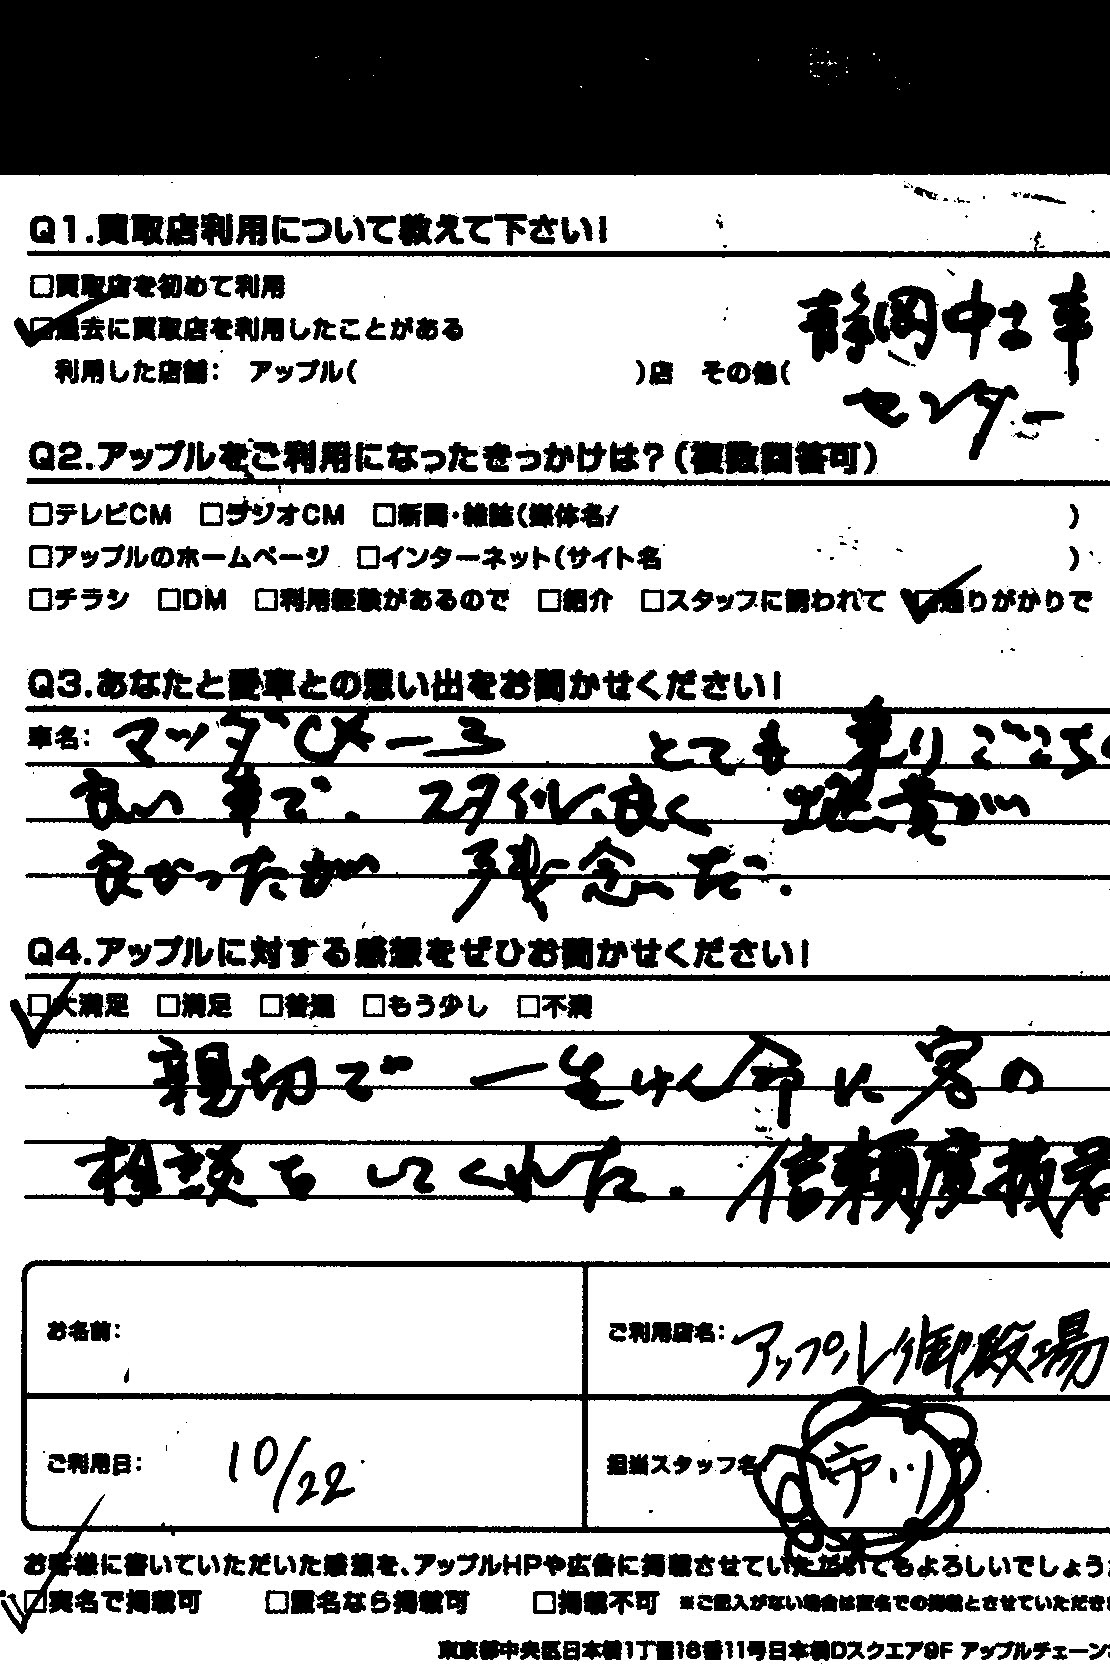 Q1.買取店利用について教えて下さい!
□買取店を初めて利用
☑過去に買取店を利用したことがある
利用した店舗: アップル( )店 その他( 静岡中古車
センター
Q2.アップルをご利用になったきっかけは?(複数回答可)
□テレビCM □ラジオCM □新聞・雑誌(媒体名/ )
□アップルのホームページ □インターネット(サイト名 )
□チラシ □DM □利用経験があるので □紹介 □スタッフに誘われて ☑通りがかりで
Q3.あなたと愛車との思い出をお聞かせください!
車名: マツダ とても 乗りごこち
良い 車で. スタイル 良く 燃費が
良かったが 残念だ.
Q4.アップルに対する感想をぜひお聞かせください!
☑大満足 □満足 □普通 □もう少し □不満
親切で 一生けん命に 客の
相談を してくれた. 信頼度抜
お名前:
ご利用店名: アップル御殿場
ご利用日: 10/22
担当スタッフ名
お客様に書いていただいた感想を、アップルHPや広告に掲載させていただいてもよろしいでしょう
☑実名で掲載可 □匿名なら掲載可 □掲載不可 ※ご記入がない場合は匿名での掲載とさせていただき
東京都中央区日本橋1丁目16番11号日本橋Dスクエア9F アップルチェーン